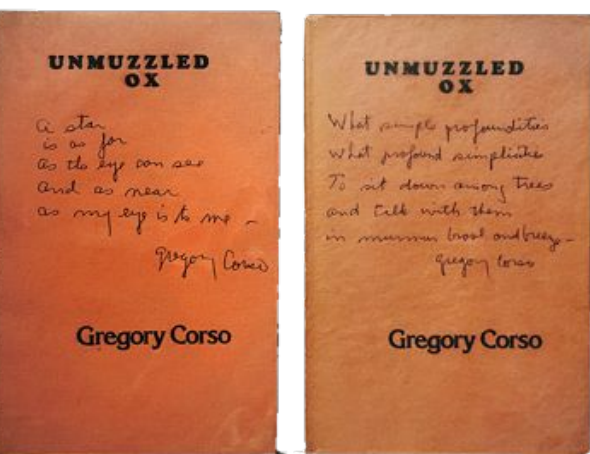 UNMUZZLED
OX
A star
is as far
as the eye can see
and as near
as my eye is to me –
Gregory Corso
Gregory Corso
UNMUZZLED
OX
What simple profoundities
What profound simplicities
To sit down among trees
and talk with them
in murmur brook and breeze –
Gregory Corso
Gregory Corso